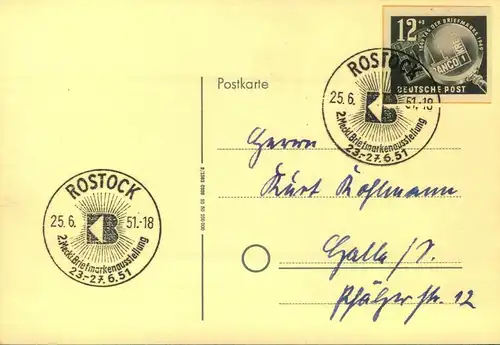 12+3
TAG DER BRIEFMARKE 1949
DEUTSCHE POST
ROSTOCK
25.6. 51.-18
KB
2.Meckl.Briefmarkenausstellung
23.-27.6.51
Postkarte
Herrn
Kurt Kohlmann
Halle/S.
Pfälzer Str. 12
ROSTOCK
25.6. 51.-18
KB
2.Meckl.Briefmarkenausstellung
23.-27.6.51